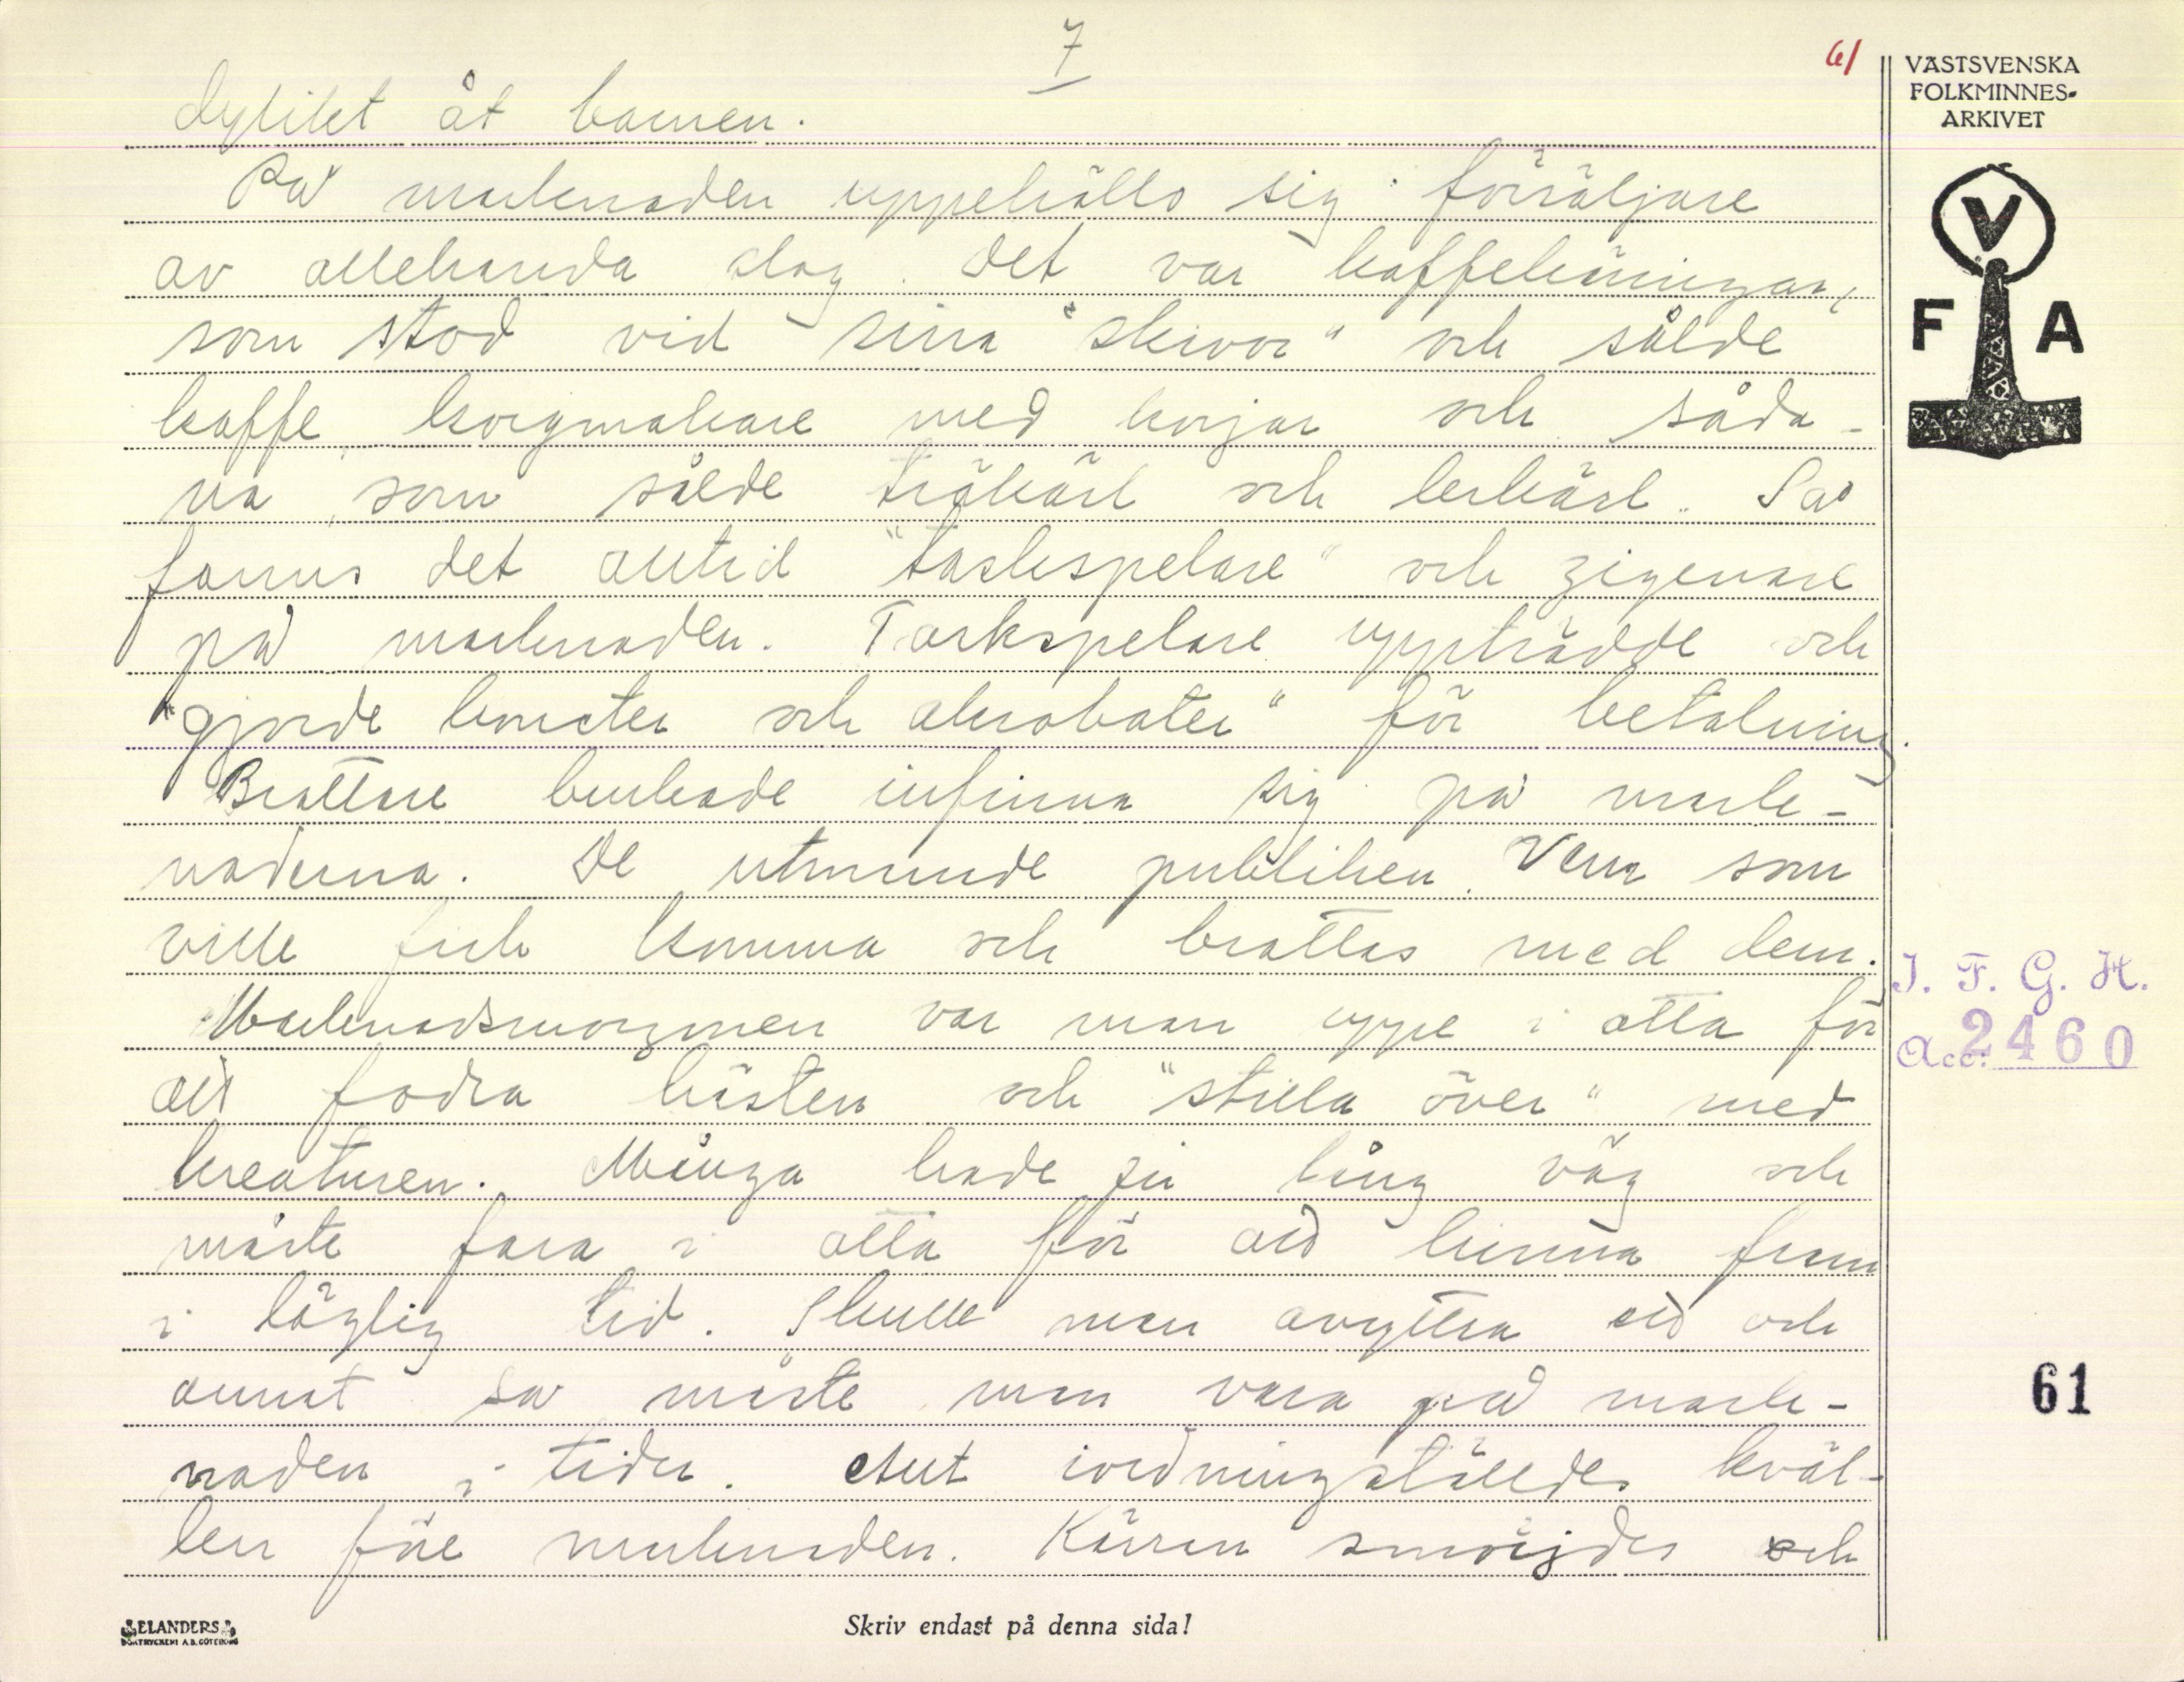 7
61
VÄSTSVENSKA
FOLKMINNES-
ARKIVET
V
F A
dylikt åt barnen.
På marknaden uppehöllo sig försäljare
av allehanda slag. Det var kaffekäringar,
som stod vid sina "skivor" och sålde
kaffe, korgmakare med korjar och såda-
na, som sålde träkärl och lerkärl. Så
fanns det alltid "taskspelare" och zigenare
på marknaden. Taskspelare uppträdde och
"gjorde konster och akrobater" för betalning.
Brottare brukade infinna sig på mark-
naderna. De utmanade publiken. Vem som
ville fick komma och brottas med dem.
Marknadsmorgonen var man uppe i otta för
att fodra hästen och "stilla över" med
kreaturen. Många hade ju lång väg och
måste fara i otta för att hinna fram
i läglig tid. Skulle man avyttra ett och
annat så måste man vara på mark-
naden i tider. Allt iordningställdes kväl-
len före marknaden. Kärran smörjdes och
I. F. G. H.
Acc: 2460
61
ELANDERS
BOKTRYCKERI A.B. GÖTEBORG
Skriv endast på denna sida!